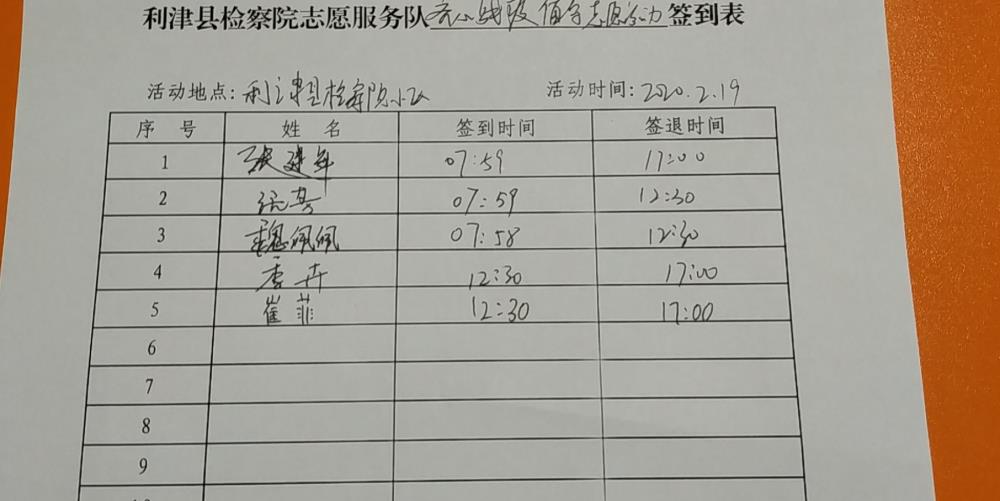 利津县检察院志愿服务队 值守志愿活动 签到表
活动地点：利津县检察院小区 活动时间：2020.2.19
序 号 姓 名 签到时间 签退时间
1 张建军 07:59 17:00
2 07:59 12:30
3 魏佩佩 07:58 12:30
4 李卉 12:30 17:00
5 崔菲 12:30 17:00
6
7
8
9